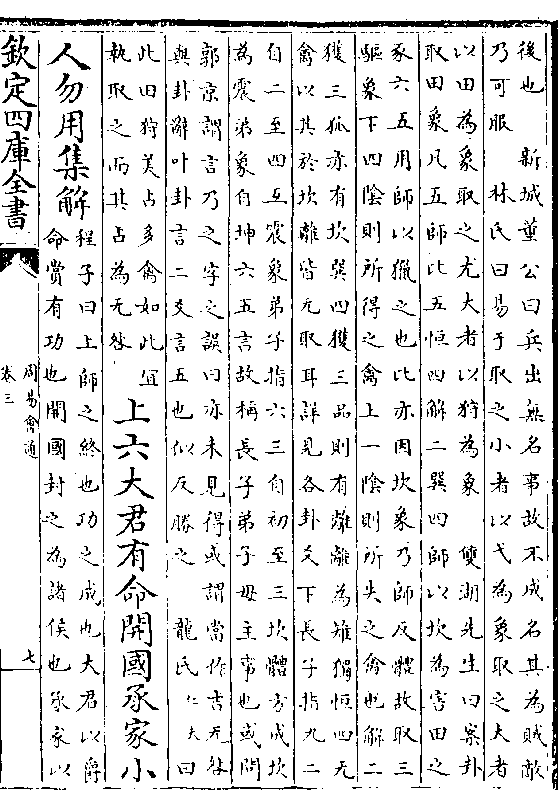 後也　新城董公曰兵出無名事故不成名其為賊敵
乃可服　林氏曰易于取之小者以弋為象取之大者
以田為象取之尤大者以狩為象　雙湖先生曰案卦
取田象凡五師比五恒四解二巽四師以坎為害田之
豕六五用師以獵之也比亦因坎象乃師反體故取三
驅象下四陰則所得之禽上一陰則所失之禽也解二
獲三狐亦有坎巽四獲三品則有離離為雉獨恒四无
禽以其於坎離皆无取耳詳見各卦爻下長子指九二
自二至四互震象弟子指六三自初至三坎體方成坎
為震弟象自坤六五言故稱長子弟子毋主事也或問
郭京謂言乃之字之誤曰亦未見得或謂當作吉无咎
與卦辭叶卦言二爻言五也似反勝之　龍氏仁夫曰
此田狩美占多禽如此宜
執取之而其占為无咎
上六大君有命開國承家小
人勿用集解
程子曰上師之終也功之成也大君以爵
命賞有功也開國封之為諸侯也承家以
欽定四庫全書
周易會通
卷三
七